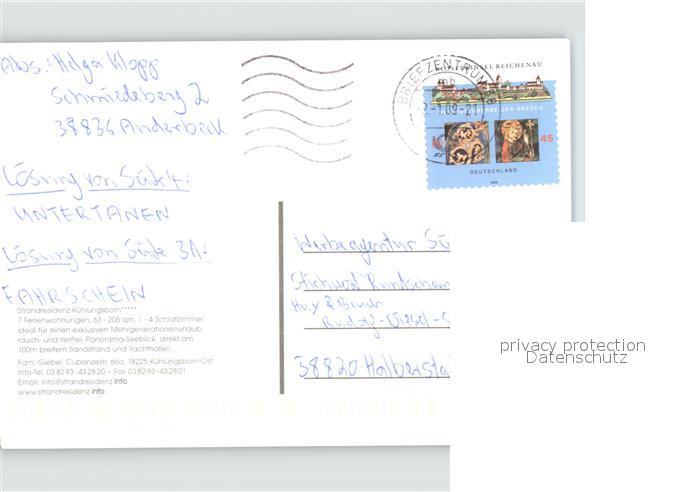 Abs.: Helga Klopp
Schmiedeberg 2
38836 Anderbeck
Lösung von Seite 4:
UNTERTANEN
Lösung von Seite 31:
FAHRSCHEIN
Strandresidenz-Kühlungsborn*****
7 Ferienwohnungen, 63 - 205 qm, 1 - 4 Schlafzimmer,
ideal für einen exklusiven Mehrgenerationenurlaub,
rauch- und tierfrei, Panorama-Seeblick, direkt am
100m breitem Sandstrand und Yachthafen.
Fam. Giebel, Cubanzestr. 66a, 18225 Kühlungsborn-Ost
Info-Tel. 03 82 93 - 43 28 20 – Fax 03 82 93 - 43 28 01
Email: info@strandresidenz.info
www.strandresidenz.info
KLOSTERINSEL REICHENAU
BRIEFZENTRUM
-1.09-21
ERBE DER UNESCO
45
DEUTSCHLAND
2008
Werbeagentur
Stichwort Rundschau
Rudolf-Diesel-S
38820 Halbersta
privacy protection
Datenschutz